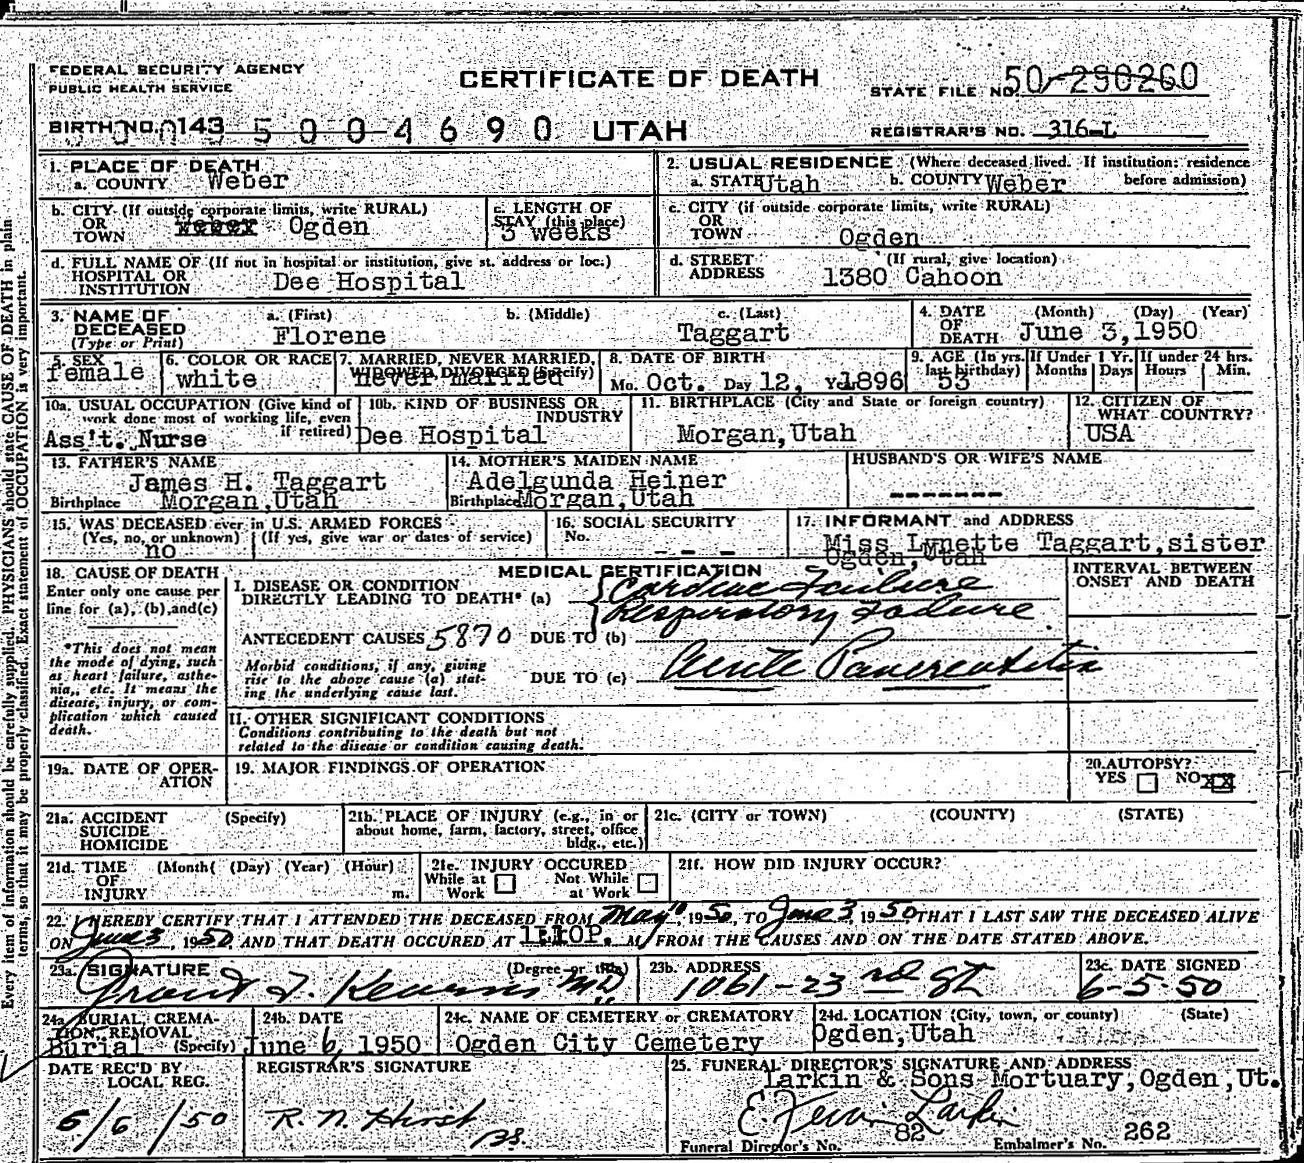 FEDERAL SECURITY AGENCY
PUBLIC HEALTH SERVICE
CERTIFICATE OF DEATH
STATE FILE NO. 50-290260
BIRTH NO. 143 5004690 UTAH
REGISTRAR'S NO. 316-L
1. PLACE OF DEATH
a. COUNTY Weber
2. USUAL RESIDENCE (Where deceased lived. If institution: residence before admission)
a. STATE Utah b. COUNTY Weber
b. CITY (If outside corporate limits, write RURAL)
OR
TOWN Weber Ogden
c. LENGTH OF
STAY (this place)
3 weeks
c. CITY (if outside corporate limits, write RURAL)
OR
TOWN Ogden
d. FULL NAME OF (If not in hospital or institution, give st. address or loc.)
HOSPITAL OR
INSTITUTION Dee Hospital
d. STREET (If rural, give location)
ADDRESS 1380 Cahoon
3. NAME OF DECEASED
(Type or Print)
a. (First) b. (Middle) c. (Last)
Florene Taggart
4. DATE OF DEATH (Month) (Day) (Year)
June 3, 1950
5. SEX
female
6. COLOR OR RACE
white
7. MARRIED, NEVER MARRIED,
WIDOWED, DIVORCED (Specify)
never married
8. DATE OF BIRTH
Mo. Oct. Day 12, Year 1896
9. AGE (In yrs. last birthday)
53
If Under 1 Yr.
Months Days
If under 24 hrs.
Hours Min.
10a. USUAL OCCUPATION (Give kind of
work done most of working life, even
if retired)
Ass't. Nurse
10b. KIND OF BUSINESS OR
INDUSTRY
Dee Hospital
11. BIRTHPLACE (City and State or foreign country)
Morgan, Utah
12. CITIZEN OF
WHAT COUNTRY?
USA
13. FATHER'S NAME
James H. Taggart
Birthplace Morgan, Utah
14. MOTHER'S MAIDEN NAME
Adelgunda Heiner
Birthplace Morgan, Utah
HUSBAND'S OR WIFE'S NAME
-------
15. WAS DECEASED ever in U.S. ARMED FORCES
(Yes, no, or unknown) (If yes, give war or dates of service)
no
16. SOCIAL SECURITY
No.
- - -
17. INFORMANT and ADDRESS
Miss Lynette Taggart, sister
Ogden, Utah
18. CAUSE OF DEATH
Enter only one cause per
line for (a), (b), and (c)
*This does not mean
the mode of dying, such
as heart failure, asthe-
nia, etc. It means the
disease, injury, or com-
plication which caused
death.
MEDICAL CERTIFICATION
INTERVAL BETWEEN
ONSET AND DEATH
I. DISEASE OR CONDITION
DIRECTLY LEADING TO DEATH* (a) Cardiac Failure
Respiratory Failure
ANTECEDENT CAUSES 5870 DUE TO (b)
Morbid conditions, if any, giving
rise to the above cause (a) stat-
ing the underlying cause last.
DUE TO (c) Acute Pancreatitis
II. OTHER SIGNIFICANT CONDITIONS
Conditions contributing to the death but not
related to the disease or condition causing death.
19a. DATE OF OPER-
ATION
19. MAJOR FINDINGS OF OPERATION
20. AUTOPSY?
YES NO XX
21a. ACCIDENT (Specify)
SUICIDE
HOMICIDE
21b. PLACE OF INJURY (e.g., in or
about home, farm, factory, street, office
bldg., etc.)
21c. (CITY or TOWN) (COUNTY) (STATE)
21d. TIME (Month) (Day) (Year) (Hour)
OF
INJURY m.
21e. INJURY OCCURED
While at Work Not While at Work
21f. HOW DID INJURY OCCUR?
22. I HEREBY CERTIFY THAT I ATTENDED THE DECEASED FROM May 1950, TO June 3, 1950 THAT I LAST SAW THE DECEASED ALIVE
ON June 3, 1950 AND THAT DEATH OCCURED AT P. M. FROM THE CAUSES AND ON THE DATE STATED ABOVE.
23a. SIGNATURE (Degree or title)
Grant M.D.
23b. ADDRESS
1061-23rd St
23c. DATE SIGNED
6-5-50
24a. BURIAL, CREMA-
TION, REMOVAL
Burial (Specify)
24b. DATE
June 6, 1950
24c. NAME OF CEMETERY or CREMATORY
Ogden City Cemetery
24d. LOCATION (City, town, or county) (State)
Ogden, Utah
DATE REC'D BY
LOCAL REG.
6/6/50
REGISTRAR'S SIGNATURE
R. N. Hirst
25. FUNERAL DIRECTOR'S SIGNATURE AND ADDRESS
Larkin & Sons Mortuary, Ogden, Ut.
Larkin
Funeral Director's No. 82 Embalmer's No. 262
Every item of information should be carefully supplied. PHYSICIANS should state CAUSE OF DEATH in plain
terms, so that it may be properly classified. Exact statement of OCCUPATION is very important.